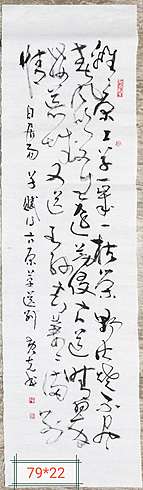 离离原上草一岁一枯荣野火烧不尽
春风吹又生远芳侵古道晴翠
接荒城又送王孙去萋萋满别
情
白居易 草 赋得古原草送别
79*22